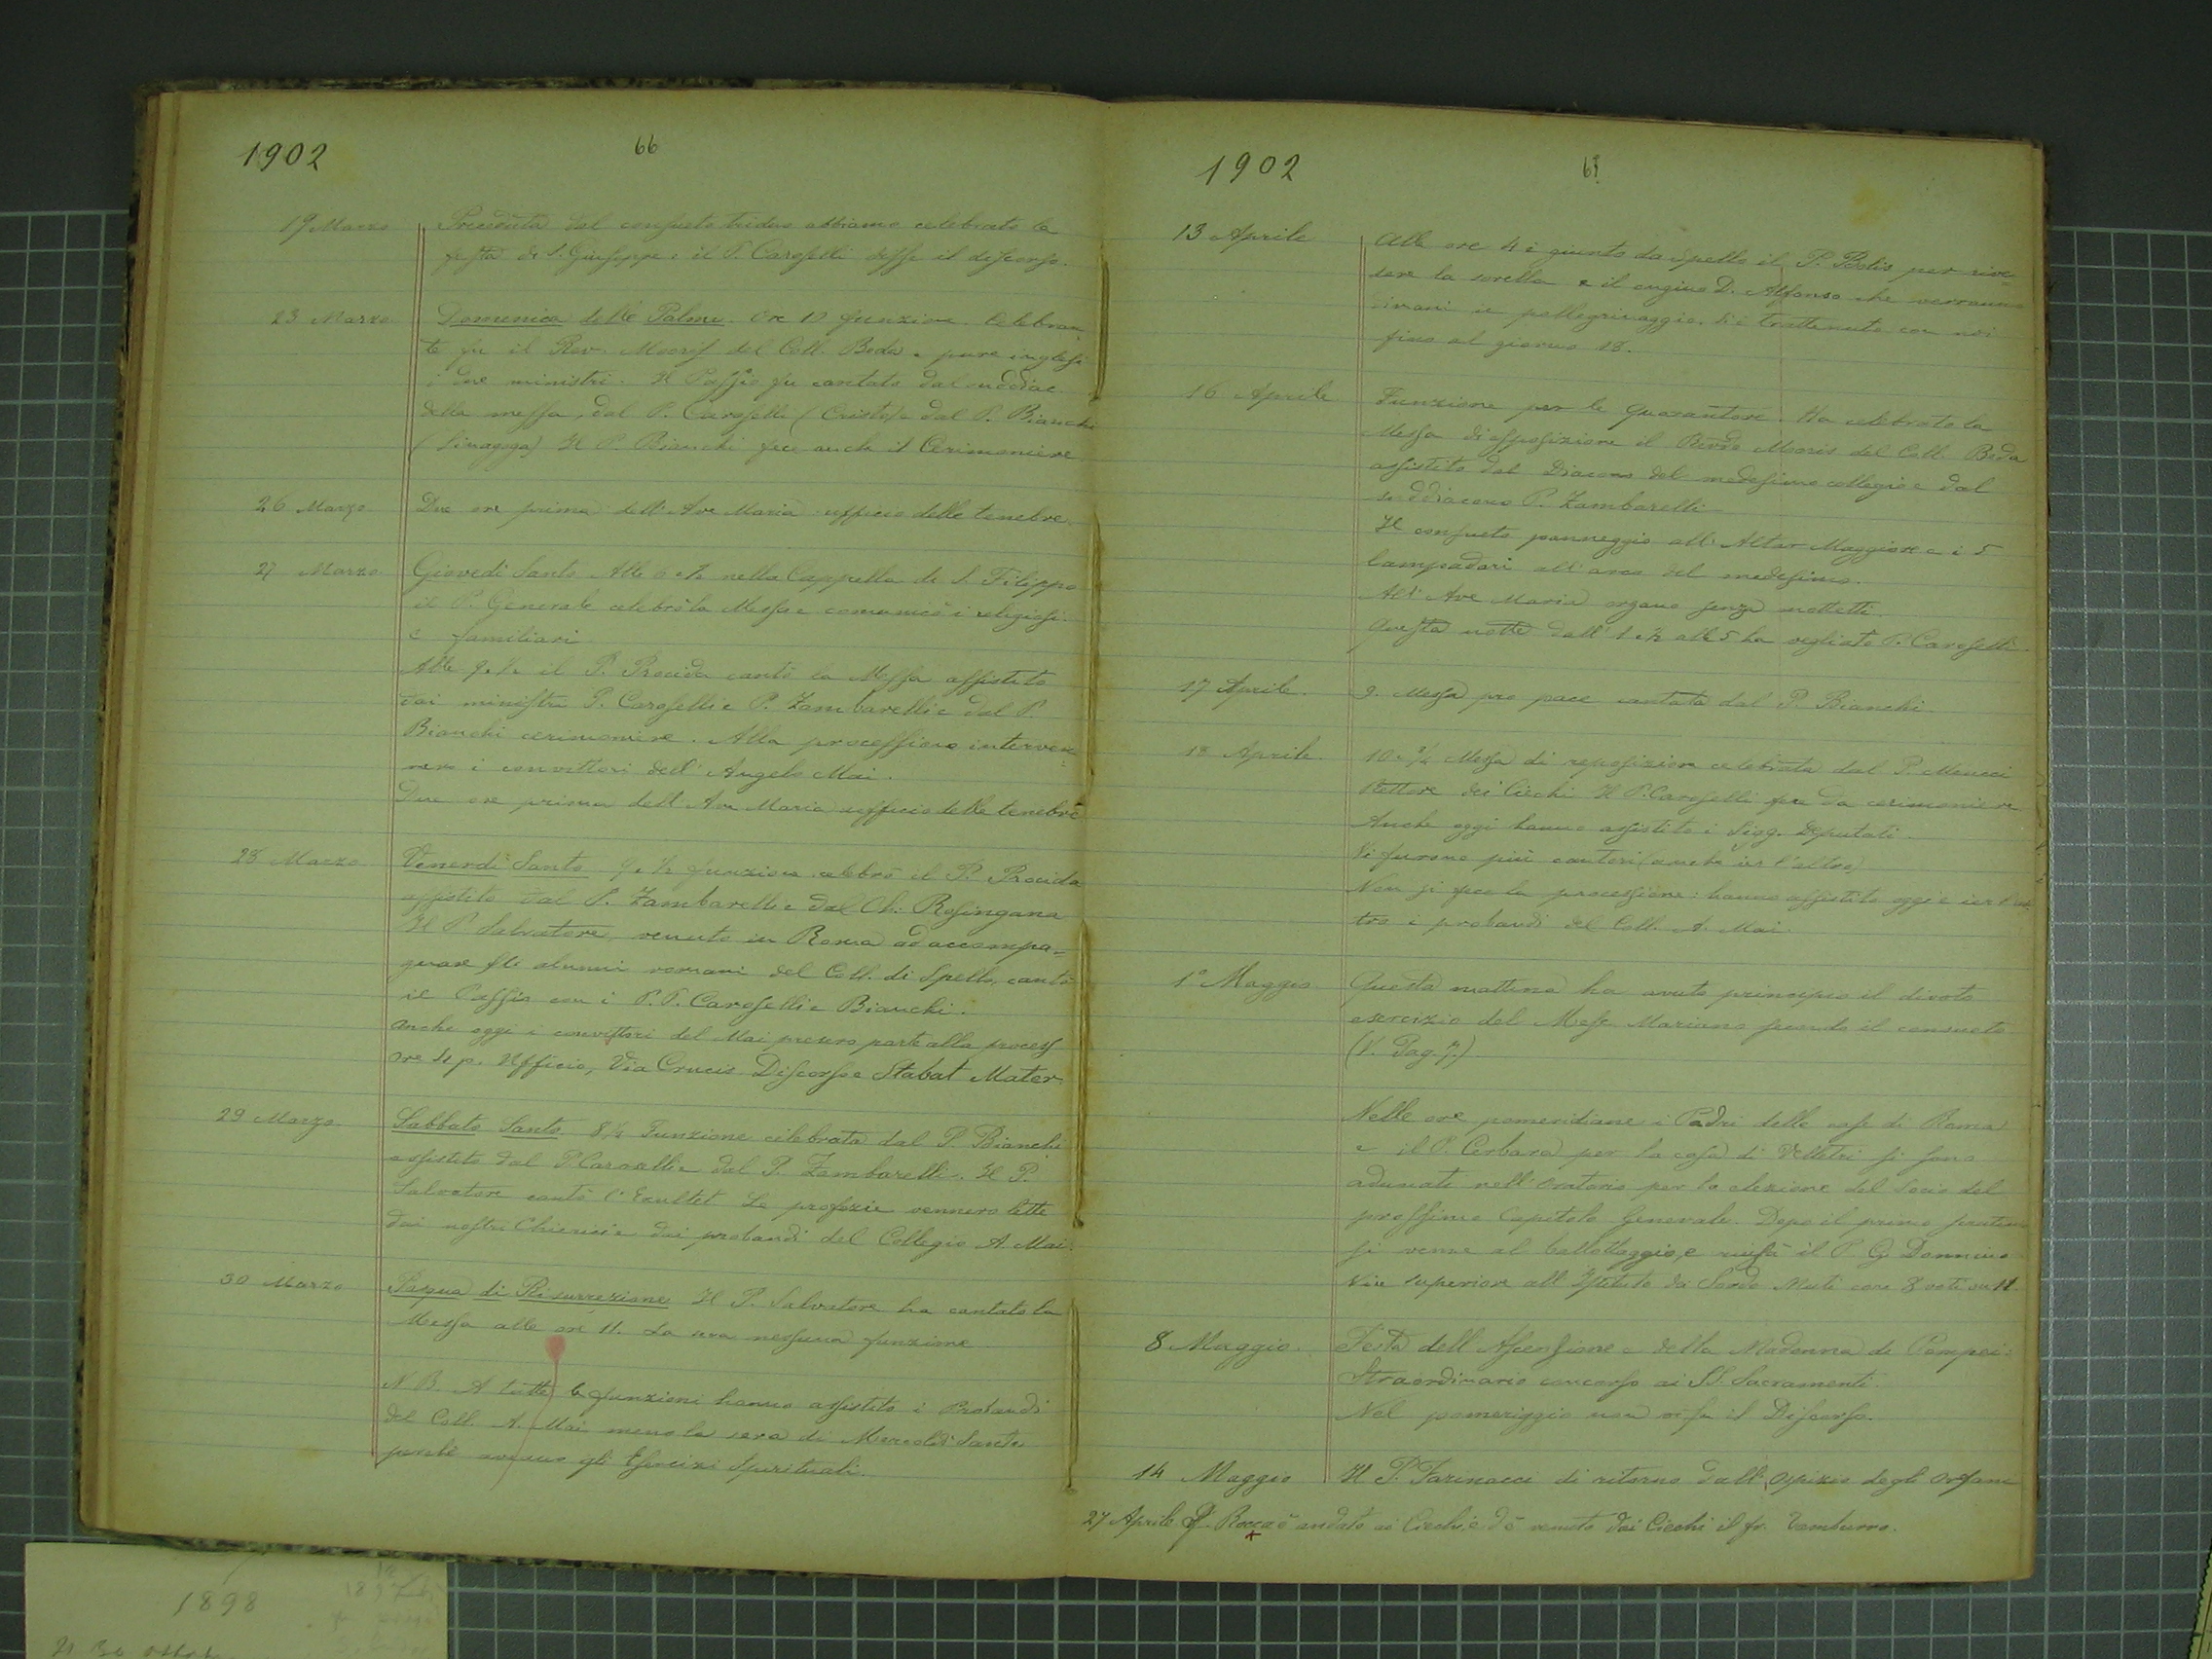 1902
66
19 Marzo Preceduta dal consueto triduo abbiamo celebrato la
festa di S. Giuseppe e il P. Caroselli disse il discorso.
23 Marzo Domenica delle Palme. Ore 10 funzione. Celebran
te fu il Rev. del Coll. Beda e pure inglesi
i due ministri. Il Passio fu cantato dal suddiac.
della messa, dal P. Caroselli (Cristo) e dal P. Bianchi
(Sinagoga) Il P. Bianchi fece anche il Cerimoniere
26 Marzo Due ore prima dell'Ave Maria ufficio delle tenebre.
27 Marzo Giovedì Santo Alle 6 e ½ nella Cappella di S. Filippo
il P. Generale celebrò la Messa e comunicò i religiosi
e familiari
Alle 9 e ½ il P. Procida cantò la Messa assistito
dai ministri P. Caroselli e P. Zambarelli e dal P.
Bianchi cerimoniere. Alla processione interven
nero i convittori dell'Angelo Mai.
Due ore prima dell'Ave Maria ufficio delle tenebre
28 Marzo Venerdì Santo 9 e ½ funzione celebrò il P. Procida
assistito dal P. Zambarelli e dal Ch. Rosingana
Il P. Salvatore, venuto in Roma ad accompa=
gnare gli alunni romani del Coll. di Spello, cantò
il Passio con i P.P. Caroselli e Bianchi.
Anche oggi i convittori del Mai presero parte alla process
ore 4 p. Ufficio, Via Crucis Discorso e Stabat Mater
29 Marzo Sabbato Santo 8 ½ Funzione celebrata dal P. Bianchi
assistito dal P. Caroselli e dal P. Zambarelli. Il P.
Salvatore cantò l'Exultet Le profezie vennero lette
dai nostri Chierici e dai probandi del Collegio A. Mai.
30 Marzo Pasqua di Risurrezione Il P. Salvatore ha cantato la
Messa alle ore 11. La sera nessuna funzione
N.B. A tutte le funzioni hanno assistito i Probandi
del Coll. A. Mai meno la sera di Mercoldì Santo
perchè avevano gli Esercizi Spirituali.
1902
67
13 Aprile Alle ore 4 è giunto da Spello il P. Bolis per rive=
dere la sorella e il cugino D. Alfonso che verranno
in pellegrinaggio. Si è trattenuto con noi
fino al giorno 18.
16 Aprile Funzione per le Quarantore. Ha celebrato la
Messa di esposizione il Rev.do del Coll. Beda
assistito dal Diacono del medesimo collegio e dal
suddiacono P. Zambarelli
Il consueto panneggio all'Altar Maggiore e i 5
lampadari all'arco del medesimo.
All'Ave Maria organo senza mottetti.
Questa notte dall'1 e ½ alle 5 ha vegliato P. Caroselli.
17 Aprile. 9. Messa pro pace cantata dal P. Bianchi.
18 Aprile. 10 e ¼ Messa di reposizione celebrata dal P. Meucci
Rettore dei Ciechi Il P. Caroselli fece da cerimoniere
Anche oggi hanno assistito i Sigg. Deputati.
Vi furono più cantori (anche ier l'altro)
Non si fece la processione: hanno assistito oggi e ier l'al
tro i probandi del Coll. A. Mai.
1° Maggio. Questa mattina ha avuto principio il divoto
esercizio del Mese Mariano secondo il consueto
(V. Pag. 7.)
Nelle ore pomeridiane i Padri delle case di Roma
e il P. Cerbara per la casa di Velletri si sono
adunati nell'oratorio per la elezione del Socio del
prossimo Capitolo Generale. Dopo il primo scrutinio
si venne al ballottaggio, e riuscì il P. G. Donnino
Vice superiore all'Istituto dei Sordo Muti con 8 voti su 11.
8 Maggio. Festa dell'Ascensione e della Madonna di Pompei:
Straordinario concorso ai SS. Sacramenti.
Nel pomeriggio non vi fu il Discorso.
14 Maggio Il P. Farinacci di ritorno dall'Ospizio degli Orfani
27 Aprile P. Rocca è andato ai Ciechi, ed è venuto dai Ciechi il fr. Tamburro.
1898